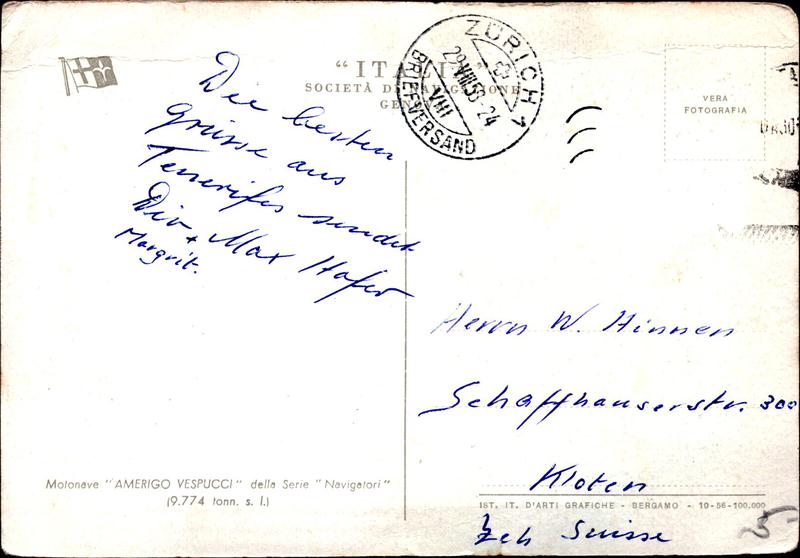 "ITALIA"
SOCIETÀ DI NAVIGAZIONE
GENOVA
ZÜRICH 1
BRIEFVERSAND
VIII
VERA
FOTOGRAFIA
Die besten
Grüsse aus
Tenerifes sendet
Dir Max Hafer
+ Margrit.
Herrn W. Hinnen
Schaffhauserstr. 300
Kloten
Zch Suisse
Motonave "AMERIGO VESPUCCI" della Serie "Navigatori"
(9.774 tonn. s. l.)
IST. IT. D'ARTI GRAFICHE - BERGAMO - 10-56-100.000
5